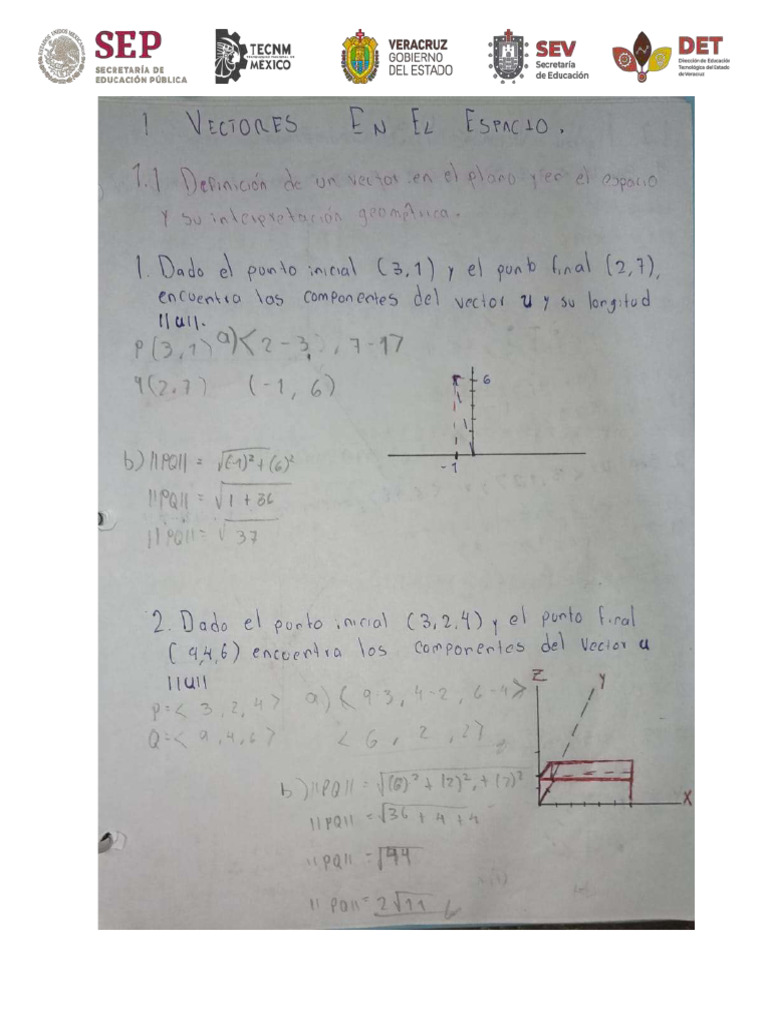 SEP
SECRETARÍA DE
EDUCACIÓN PÚBLICA
TECNM
MÉXICO
VERACRUZ
GOBIERNO
DEL ESTADO
SEV
Secretaría
de Educación
DET
Dirección de Educación
Tecnológica del Estado
de Veracruz
1 VECTORES EN EL ESPACIO.
1.1 Definición de un vector en el plano y en el espacio
y su interpretación geométrica.
1. Dado el punto inicial (3,1) y el punto final (2,7),
encuentra los componentes del vector u y su longitud
||u||.
P(3,1) a)< 2-3, 7-1>
q(2,7) (-1, 6)
6
-1
b) ||PQ|| = √(-1)² + (6)²
||PQ|| = √1 + 36
||PQ|| = √37
2. Dado el punto inicial (3,2,4) y el punto final
(9,4,6) encuentra los componentes del vector u
||u||
P=< 3, 2, 4> a) < 9-3, 4-2, 6-4>
Q=< 9, 4, 6> < 6, 2, 2>
Z
Y
X
b) ||PQ|| = √(6)² + (2)², + (2)²
||PQ|| = √36 + 4 + 4
||PQ|| = √44
||PQ|| = 2√11